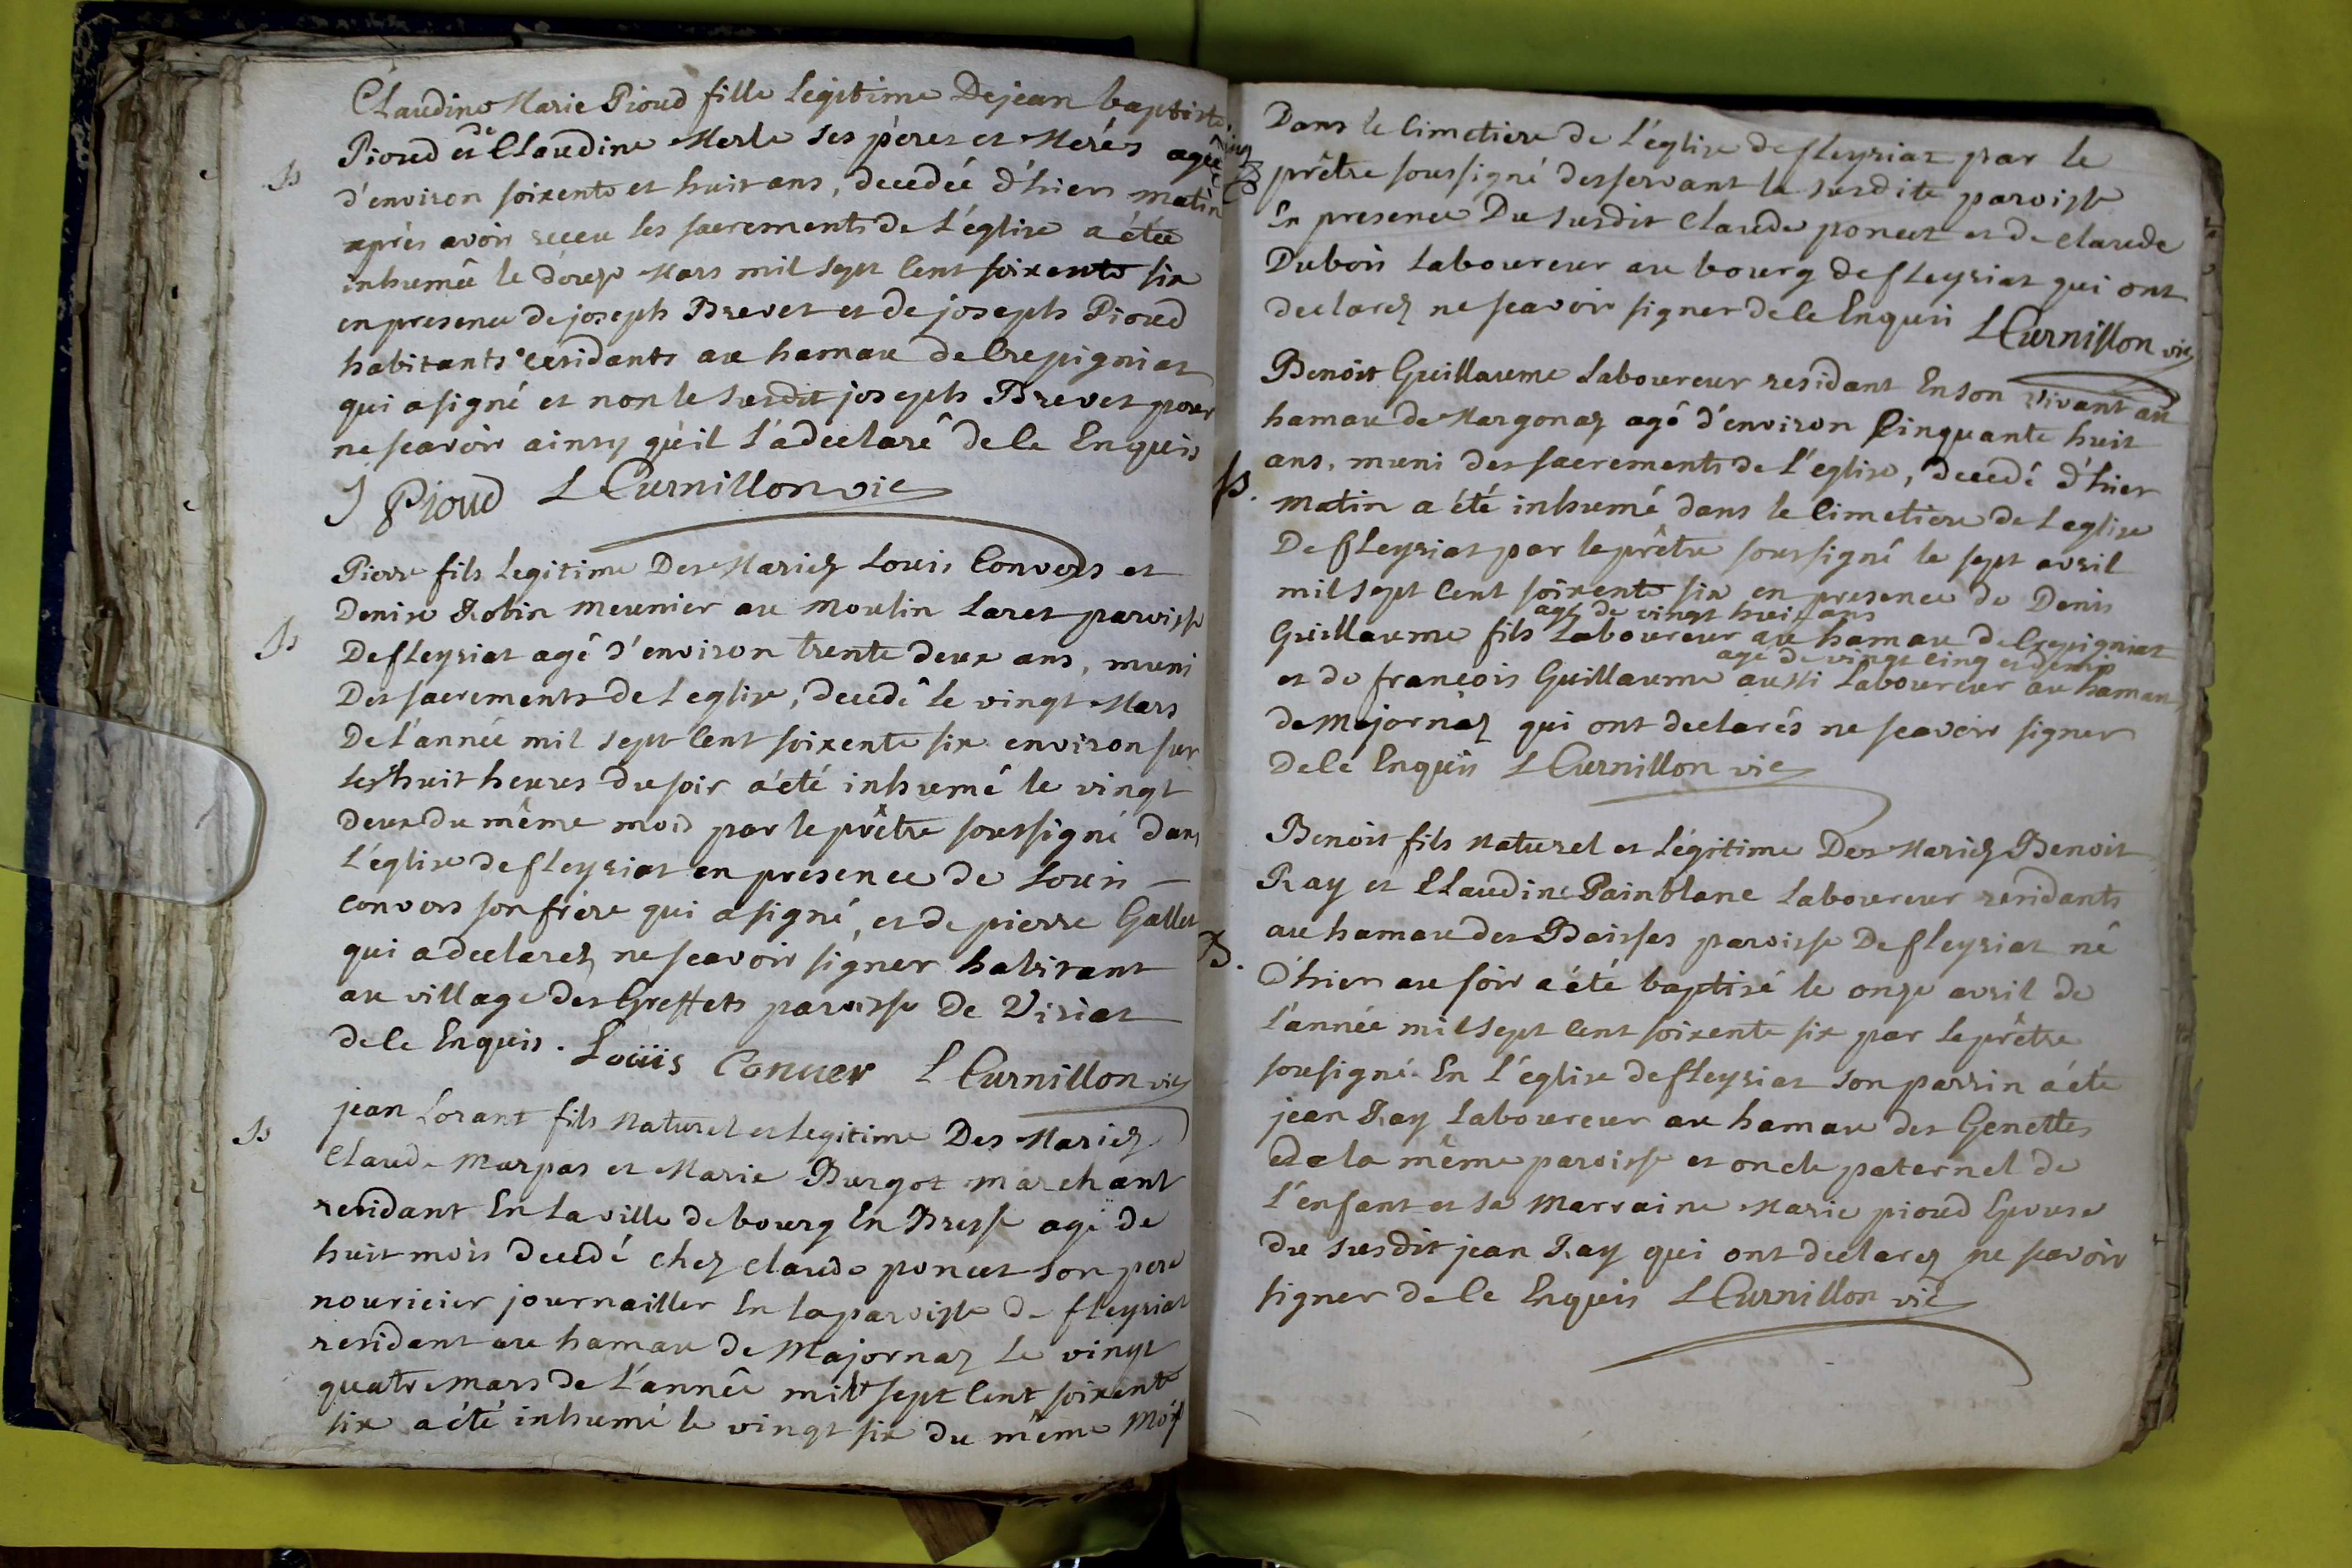 Claudine Marie Pioud fille Legitime De jean baptiste
Pioud et de Claudine Merle ses péres et Merés agée
S
d'environ soixente et huit ans, decedée d'hier matin
aprés avoir receu les sacrements de L'église a étée
inhumée le douze Mars mil sept Cent soixente six
en presence de joseph Brevet et de joseph Pioud
habitants residants au hamau de Crepigniat
qui a signé et non le susdit joseph Brevet pour
ne scavoir ainsy qu'il L'a declaré de Ce Enquis
J Pioud L Curnillon vic
Pierre fils Legitime Des Mariez Louis Convers et
Denise Robin meunier au Moulin Laret paroisse
S
De fleyriat agé d'environ trente deux ans, muni
Des sacrements de L eglise, decedé le vingt Mars
De L'année mil sept Cent soixente six environ sur
les huit heures du soir a été inhumé le vingt
deux du même mois par le prêtre soussigné dans
L'église de fleyriat en presence de Louis
convers son frére qui a signé, et de pierre Gallet
qui a declarez ne scavoir signer habitant
au village des Greffets paroisse De Viriat
de Ce Enquis. Loüis Conuer L Curnillon vic
S
jean Lorant fils Naturel et Legitime Des Mariez
Claude Marpas et Marie Burgot marchant
residant En La ville de bourg En Bresse agé de
huit mois decedé chez claude poncet son pere
nouricier journailler En la paroisse de fleyriat
residant au hamau de Majornaz Le vingt
quatre mars de L'année mil sept Cent soixente
six a été inhumé le vingt six du même Mois
Dans le Cimetiere de L'église de fleyriat par le
prêtre soussigné desservant la susdite paroisse
En presence Du susdit Claude poncet et de claude
Dubois Laboureur au bourg de fleyriat qui ont
declarez ne scavoir signer de Ce Enquis L Curnillon vic
Benoit Guillaume Laboureur residant En son vivant au
hamau de Margonaz agé d'environ Cinquante huit
ans, muni des sacrements de L'église, decedé d'hier
S.
matin a été inhumé dans le Cimetiere de L eglise
De fleyriat par le prêtre soussigné le sept avril
mil sept Cent soixente six en presence de Denis
agé de vingt huit ans
Guillaume fils Laboureur au hamau de Crepigniat
agé de vingt cinq et demi
et de francois Guillaume aussi Laboureur au hamau
de Majornaz qui ont declarés ne scavoir signer
De Ce Enquis L Curnillon vic
Benoit fils Naturel et Légitime Des Mariez Benoit
Ray et Claudine Painblanc Laboureur residants
au hamau des Baisses paroisse De fleyriat né
B.
d'hier au soir a été baptisé le onze avril de
L'année mil sept Cent soixente six par le prêtre
sousigné En L'église de fleyriat son parrin a été
jean Ray Laboureur au hamau des Genettes
de la même paroisse et oncle paternel de
L'enfant et sa Marraine Marie pioud Epouse
du susdit jean Ray qui ont declarez ne scavoir
signer de Ce Enquis L Curnillon vic